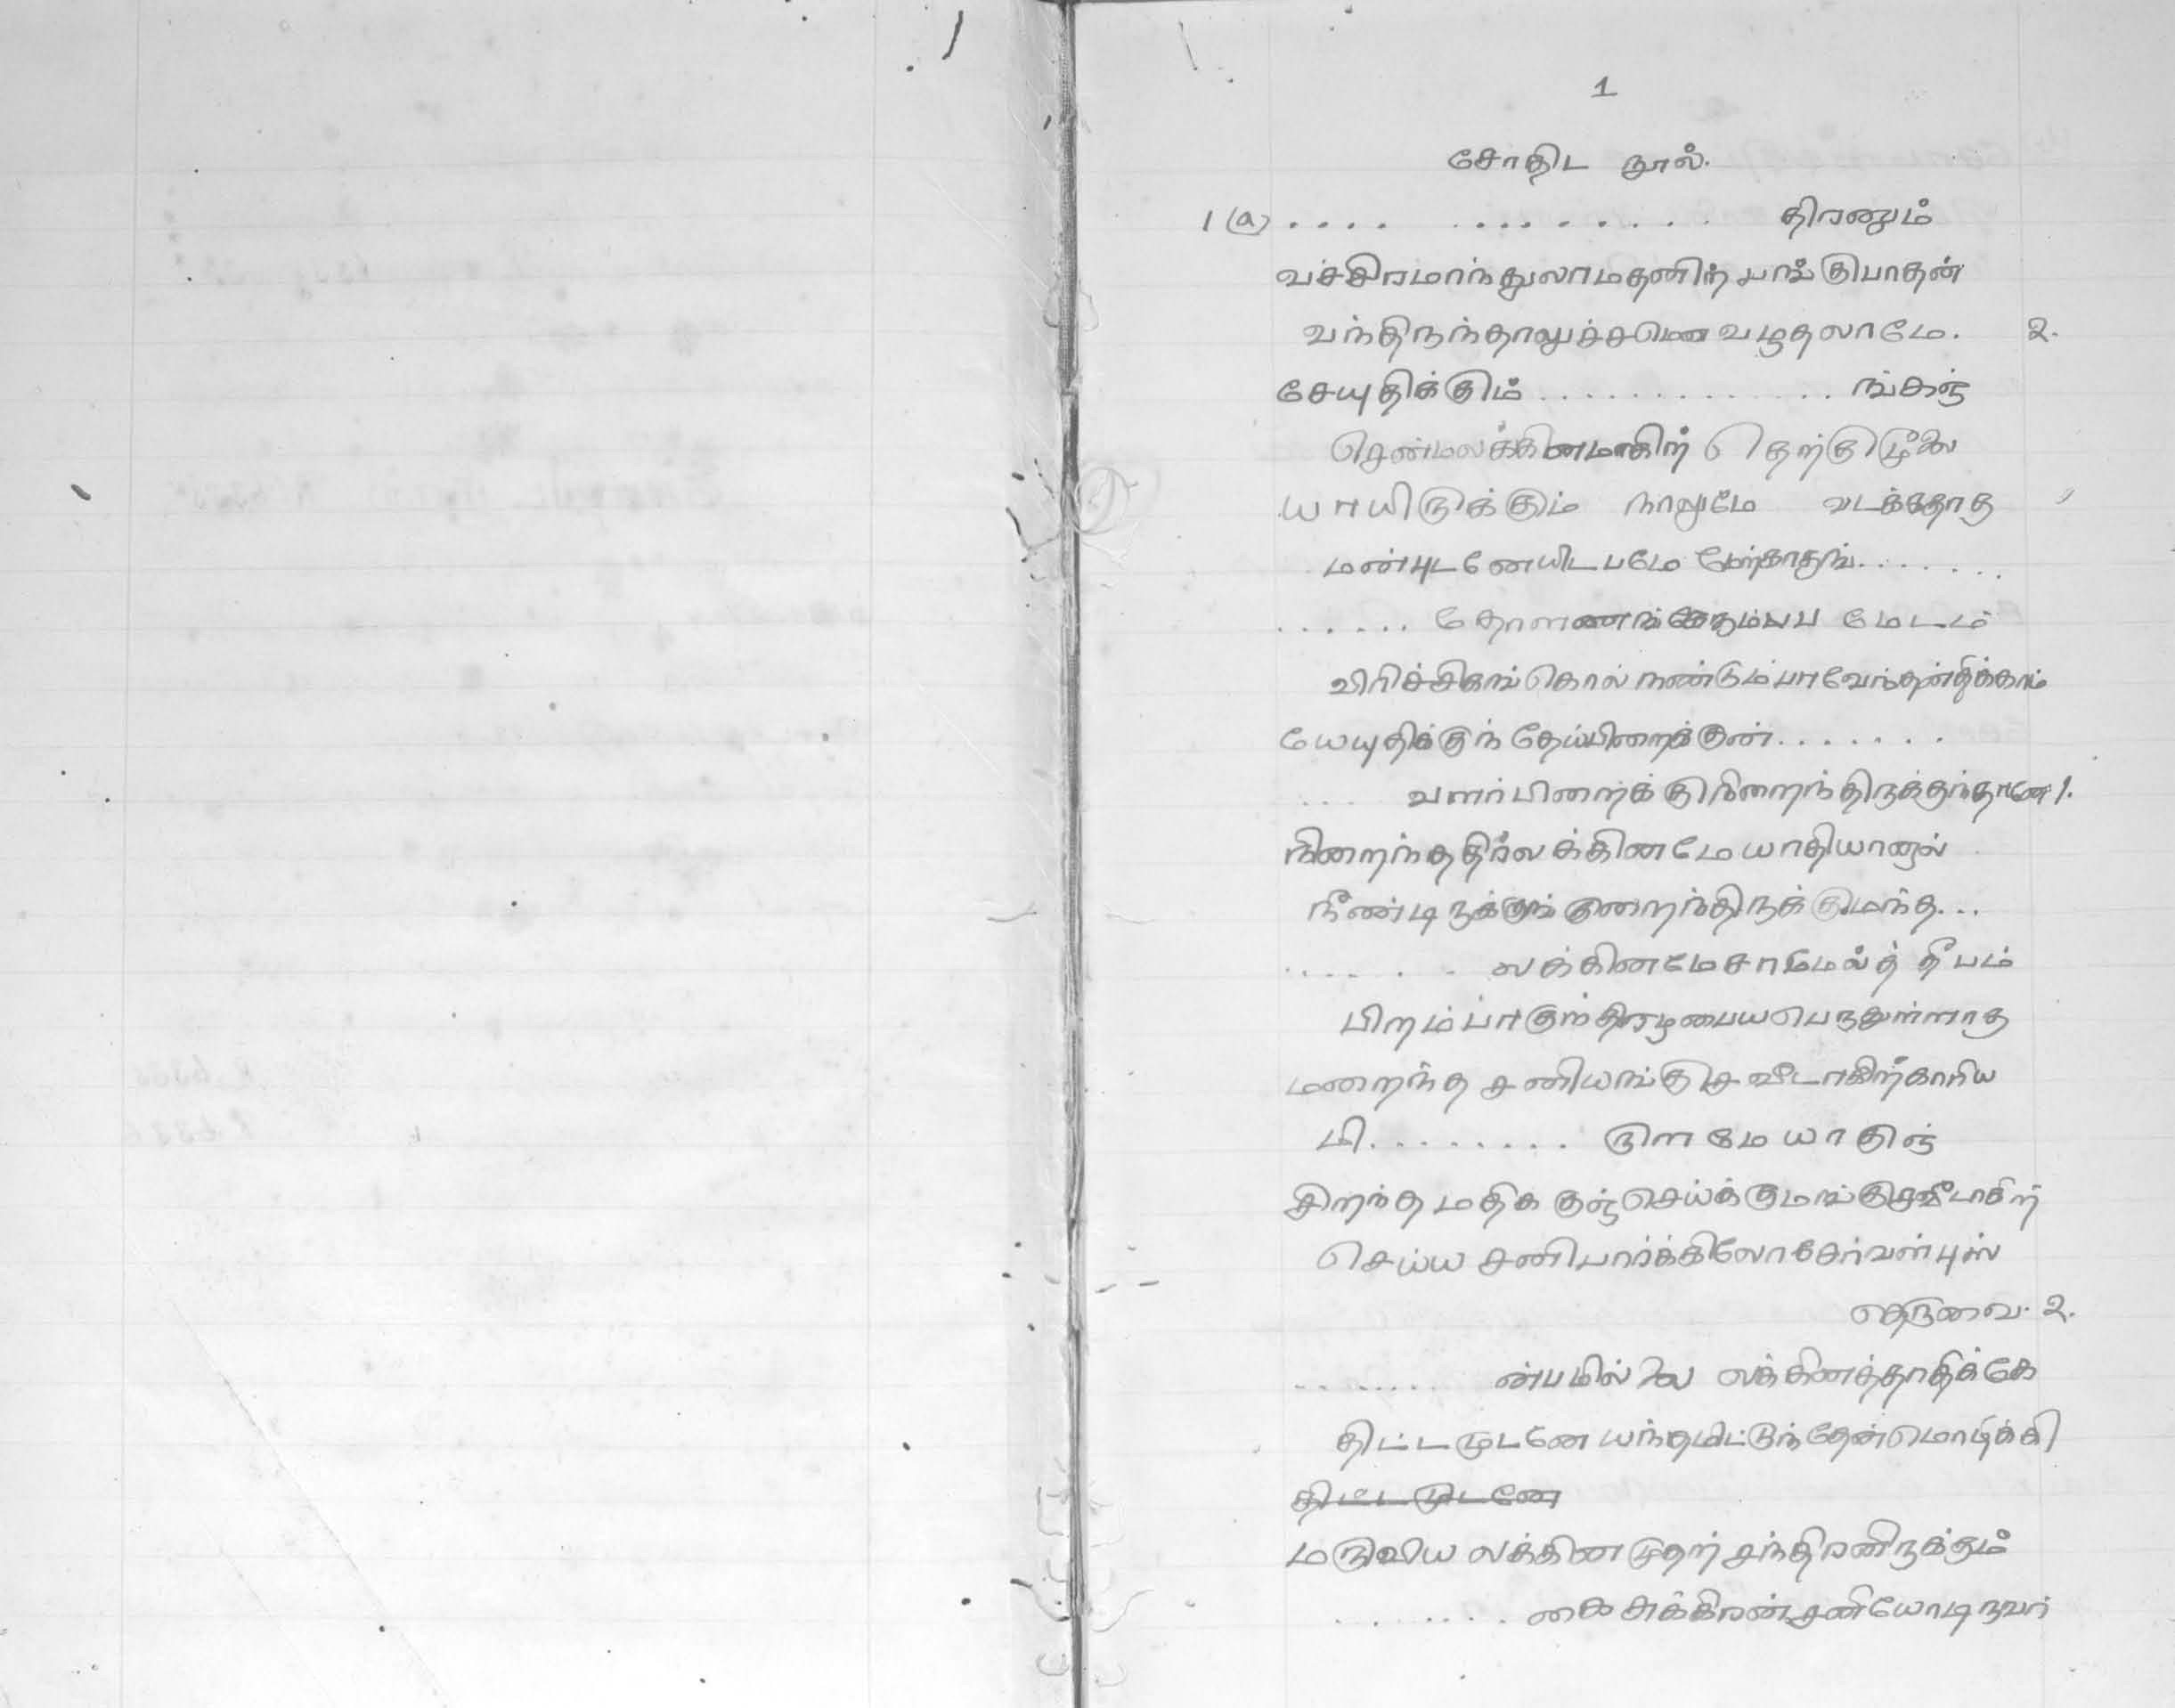 1
சோதிட நூல்.
1(a) .... ......... திரனும்
வச்சிரமார்ந்துலாமதனிற் பாங்குபாதன்
வந்திருந்தாலுச்சமென வழுதலாமே. ௨.
சேயுதிக்கும் ............. ங்கஞ்
சென்மலக்கினமாகிற் தெற்குமூலை
யாயிடுக்கும் நாலுமே வடக்கதாத
மண்புடனேயிடபமே மேற்கதாகுங் .......
...... தோளணங்கே கும்பப மேடம்
விரிச்சிகங் கொல் நண்டும்பாவேந்தன்திக்காம்
யேயுதிக்குந் தேய்பிறைக்குன் .......
.... வளர்பிறைக்கு நிறைந்திருக்குந்தானே 1.
நிறைந்ததிரலக்கினமே யாதியானால்
நீண்டிருக்குங் குறைந்திருக்குமந்த ...
...... லக்கினமேசாமேல்த் தீபம்
பிறம்பாகுந் திரழபைய பெருதுள்ளாத
மறைந்த சனியங்குச வீடாகிற்காரிய
மி ......... ளமேயாகுஞ்
சிறந்த மதிக குஞ்செய்க்குமங்குசவீடாகிற்
செய்ய சனிபார்க்கிலோ சேர்வள்புஸ்
தெருவை. ௨.
....... ன்பமில்லை லக்கினத்தாதிக்கே
திட்டமுடனே யந்தமிட்டுந் தேன்மொழிக்கி
திட்டமுடனே
மருவிய லக்கினமுதற் சந்திரனிருக்கும்
....... கை சுக்கிரன்சனியோடிருவர்